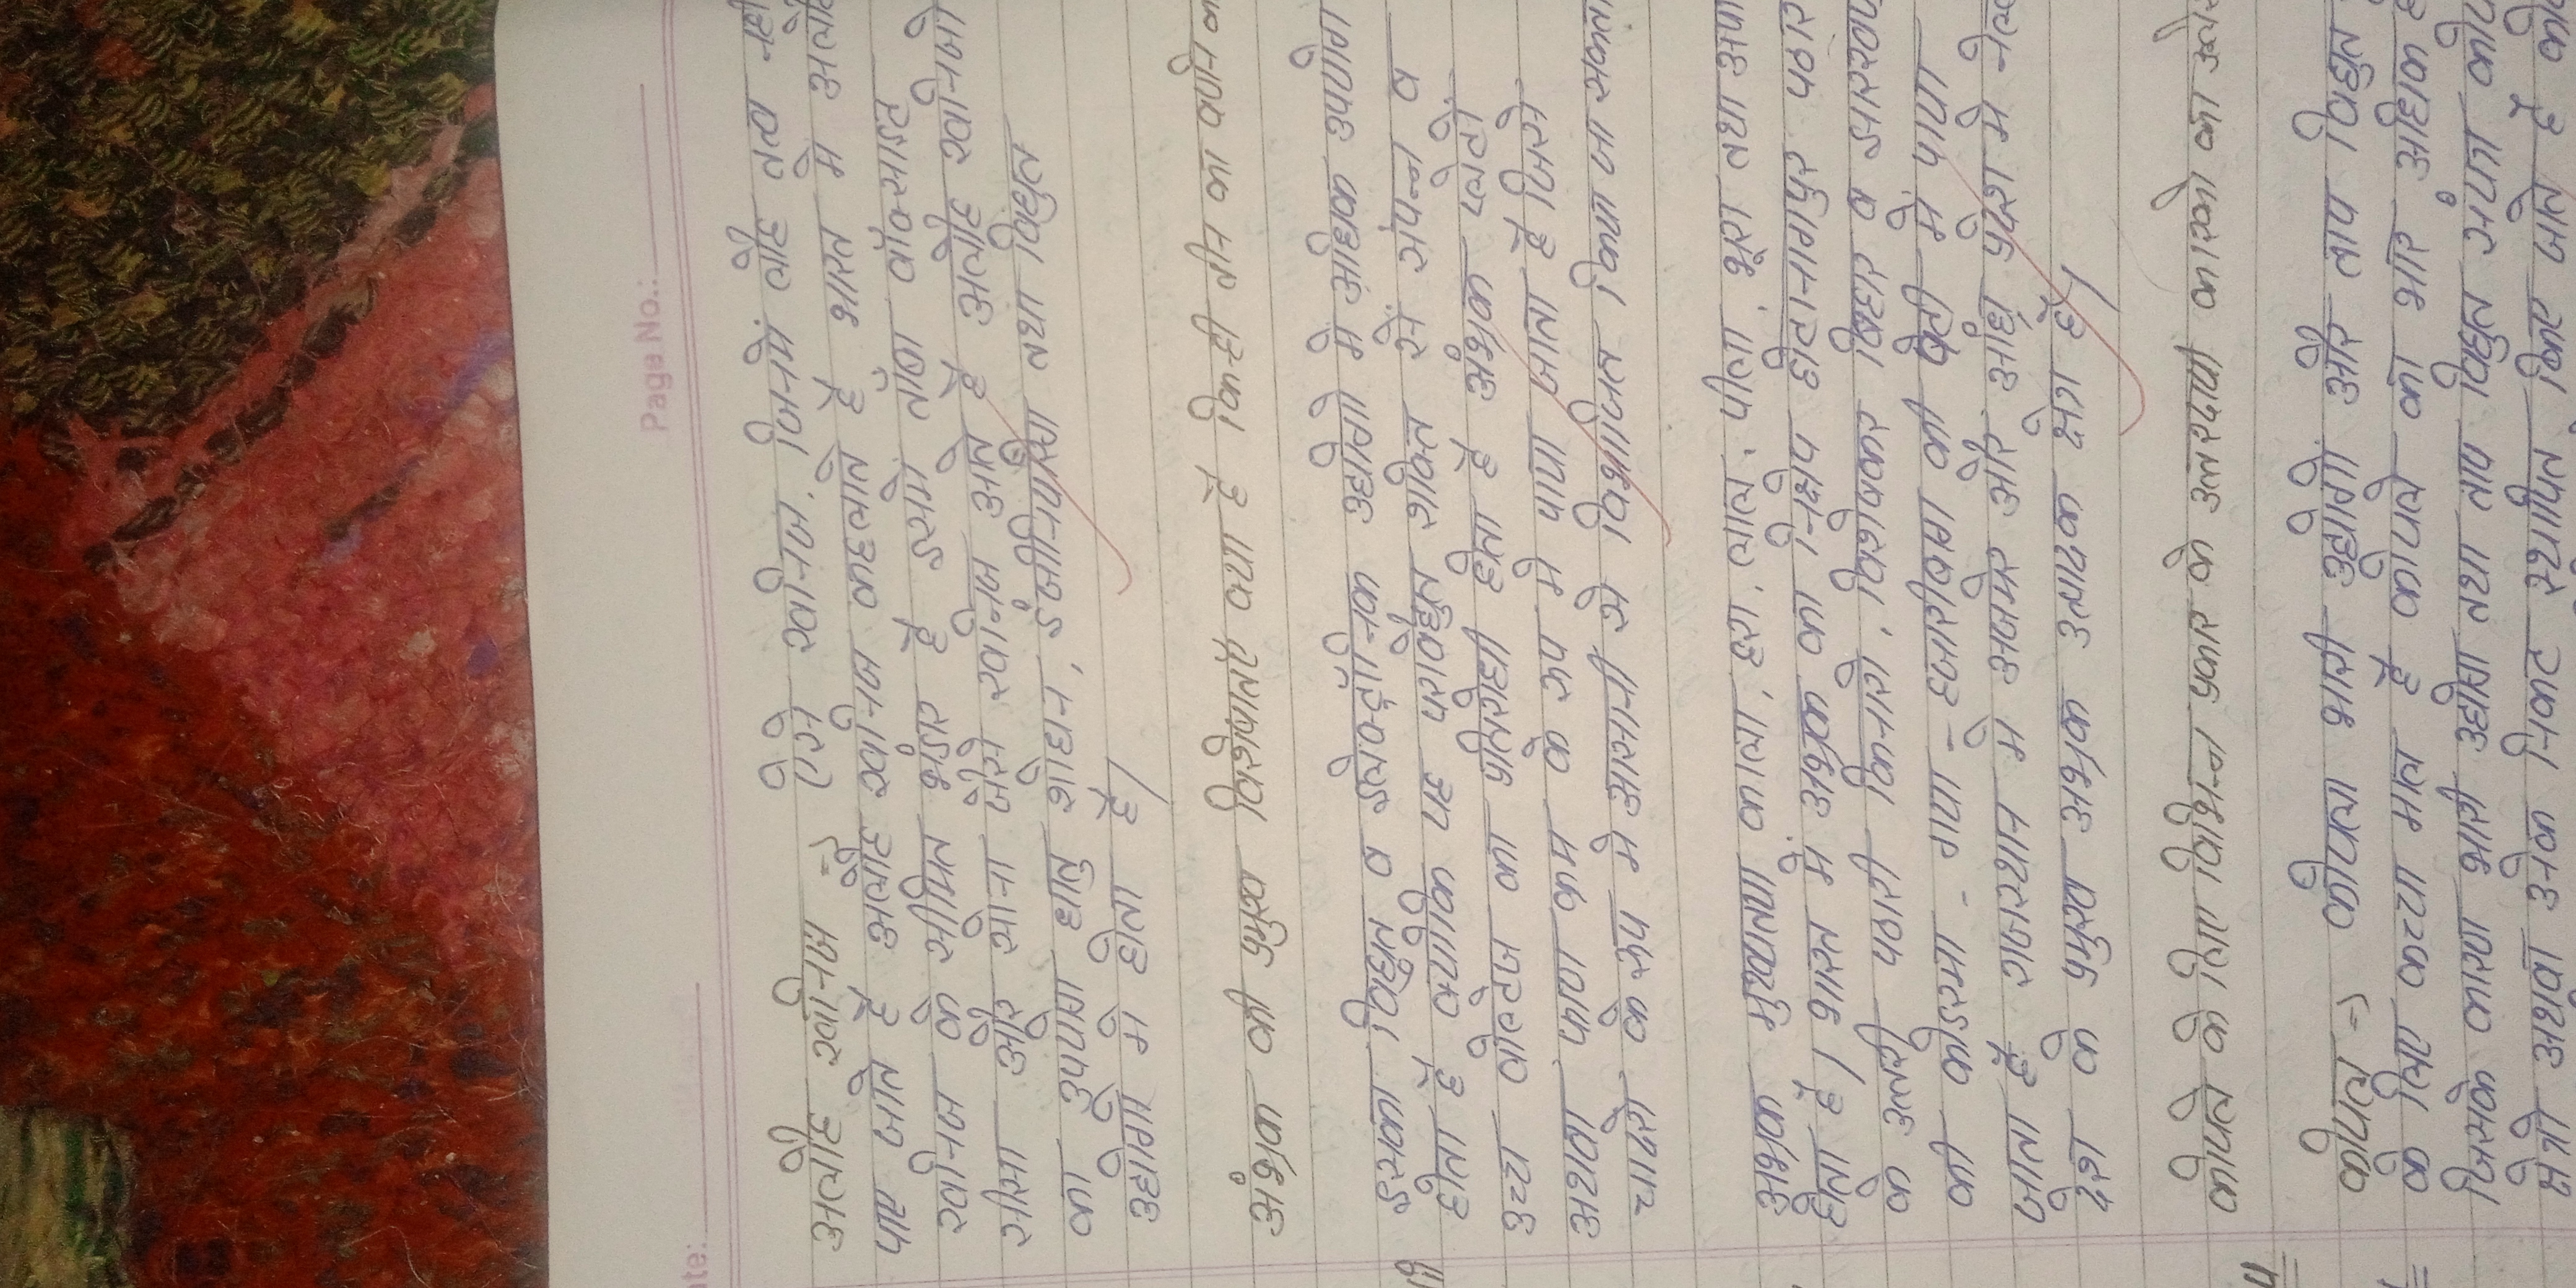 Page No.:
ate:
अलौह खनिज => ऐसे खनिज, जिनमें लौह तत्व नही
पाए जाते है अलौह खनिज कहलाते है भारत मे अलौह
खनिज के सीमित भंडार है इसमे ताँबा बॉक्साइट
सीसा और सोना जैसे खनिज आते है अलौह खनिजो
का उपयोग धातु शोधन, इंजीनियरिंग तथा विद्युत
उद्योगो मे होता है।
अंभ्रक की प्रमुख विशेषताएं क्या है किन्ही तीन का वर्णन
इसका विद्युत व इलेक्ट्रॉनिक उद्योगो मे अधिक उपयोग
होता है क्योकि यह परावैद्युत शक्ति से संपन्न व
उच्च वोल्टेज का प्रतिरोधी होता है अंभ्रक प्लेटो
अथवा पत्रण क्रम के रूप मे पाया जाता है जिसे
चादरो के रूप मे आसानी से विभाजित किया जा सकता
अभ्रक मुख्यतया काला, हरा, लाल, पीला, भूरा तथा अपा
होता है। भारत मे अभ्रक का निक्षेप छोटानागपुर पठार
के उत्तरी पठारी किनारो, विशेषकर बिहार व झारखण्ड
की कोडरमा - गया - हजारीबाग की पेटी मे पाया
जाता है राजस्थान मे अजमेर और आंध्र प्रदेश मे नेल्
देश के प्रमुख अभ्रक उत्पादक क्षेत्र है।
कोयले के लिए विभिन्न प्रकार के उत्तरदायी कारको का उल्ले
कोयला => कोयला भारी उद्योगो और ताप विद्युत
के लिए कच्चा माल है कोयले का भार अधिक है
जिसके कारण भारी उद्योग तथा ताप विद्युत संयंत्र कोय
क्षेत्रो अथवा उनके निकट स्थापित किए जाते है को